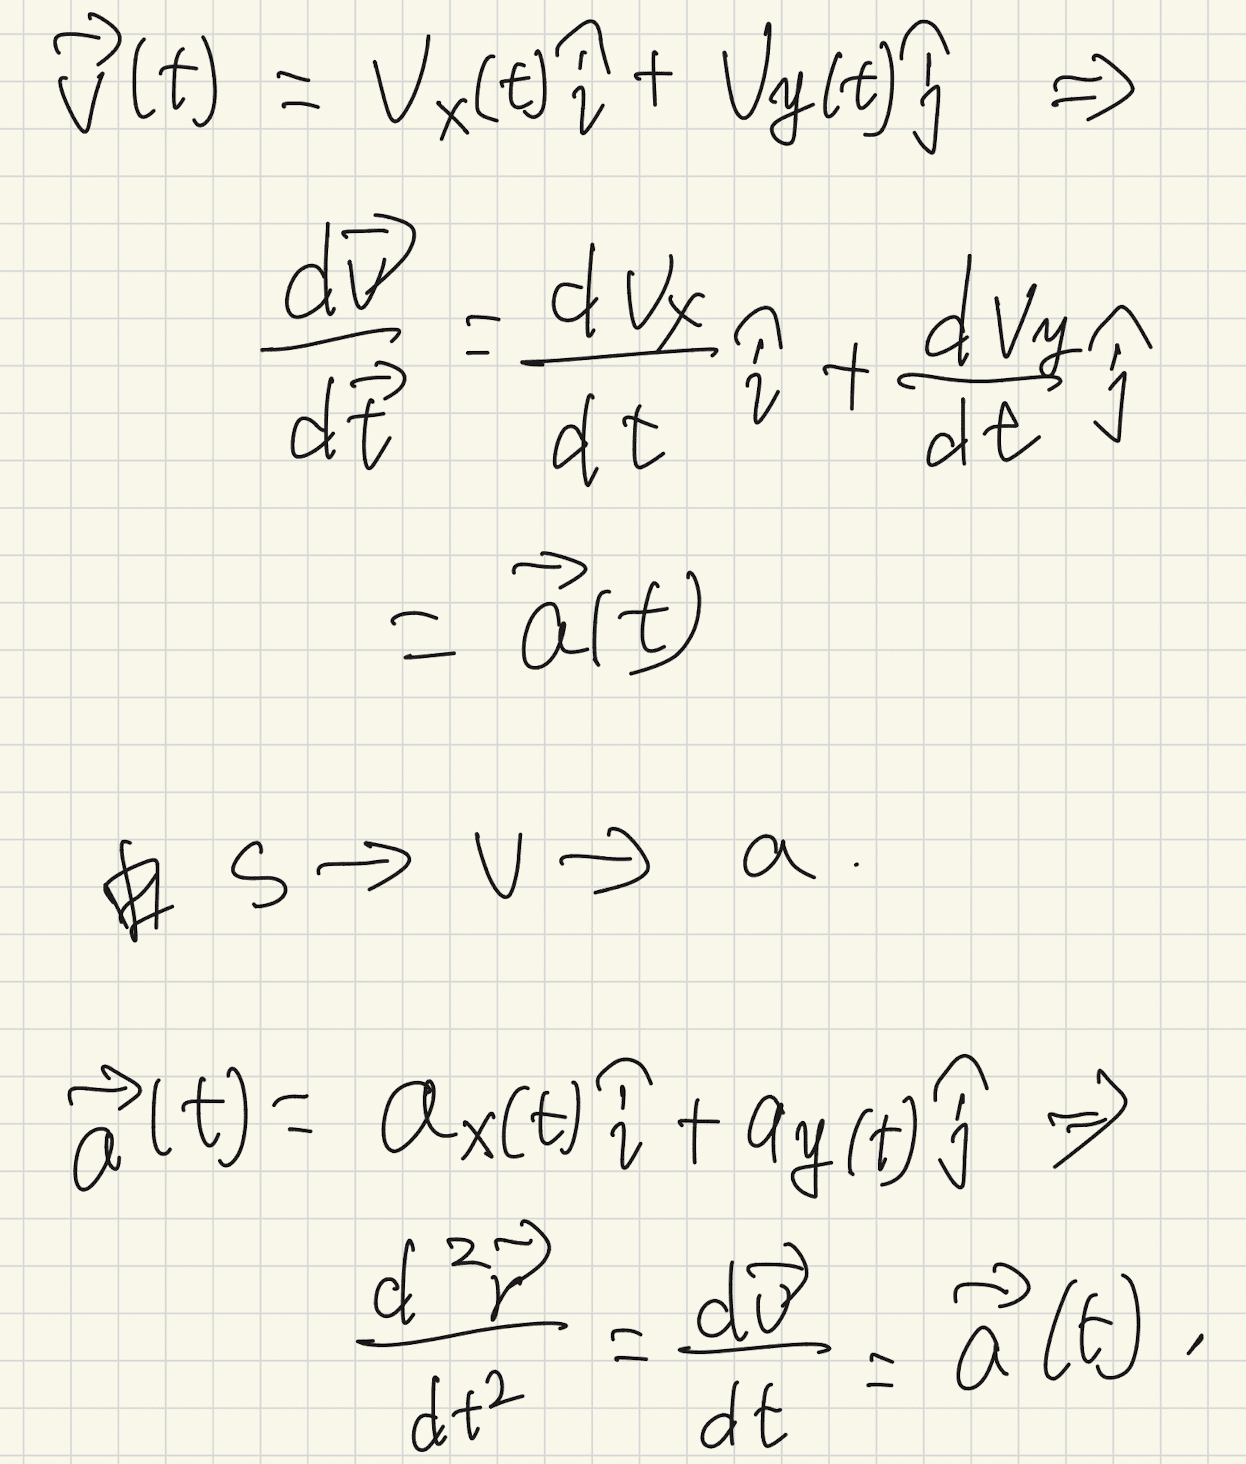 $\vec{v}(t) = v_x(t)\hat{i} + v_y(t)\hat{j} \Rightarrow$
$\frac{d\vec{v}}{d\vec{t}} = \frac{dv_x}{dt}\hat{i} + \frac{dv_y}{dt}\hat{j}$
$= \vec{a}(t)$
$s \rightarrow v \rightarrow a.$
$\vec{a}(t) = a_x(t)\hat{i} + a_y(t)\hat{j} \Rightarrow$
$\frac{d^2\vec{r}}{dt^2} = \frac{d\vec{v}}{dt} = \vec{a}(t),$